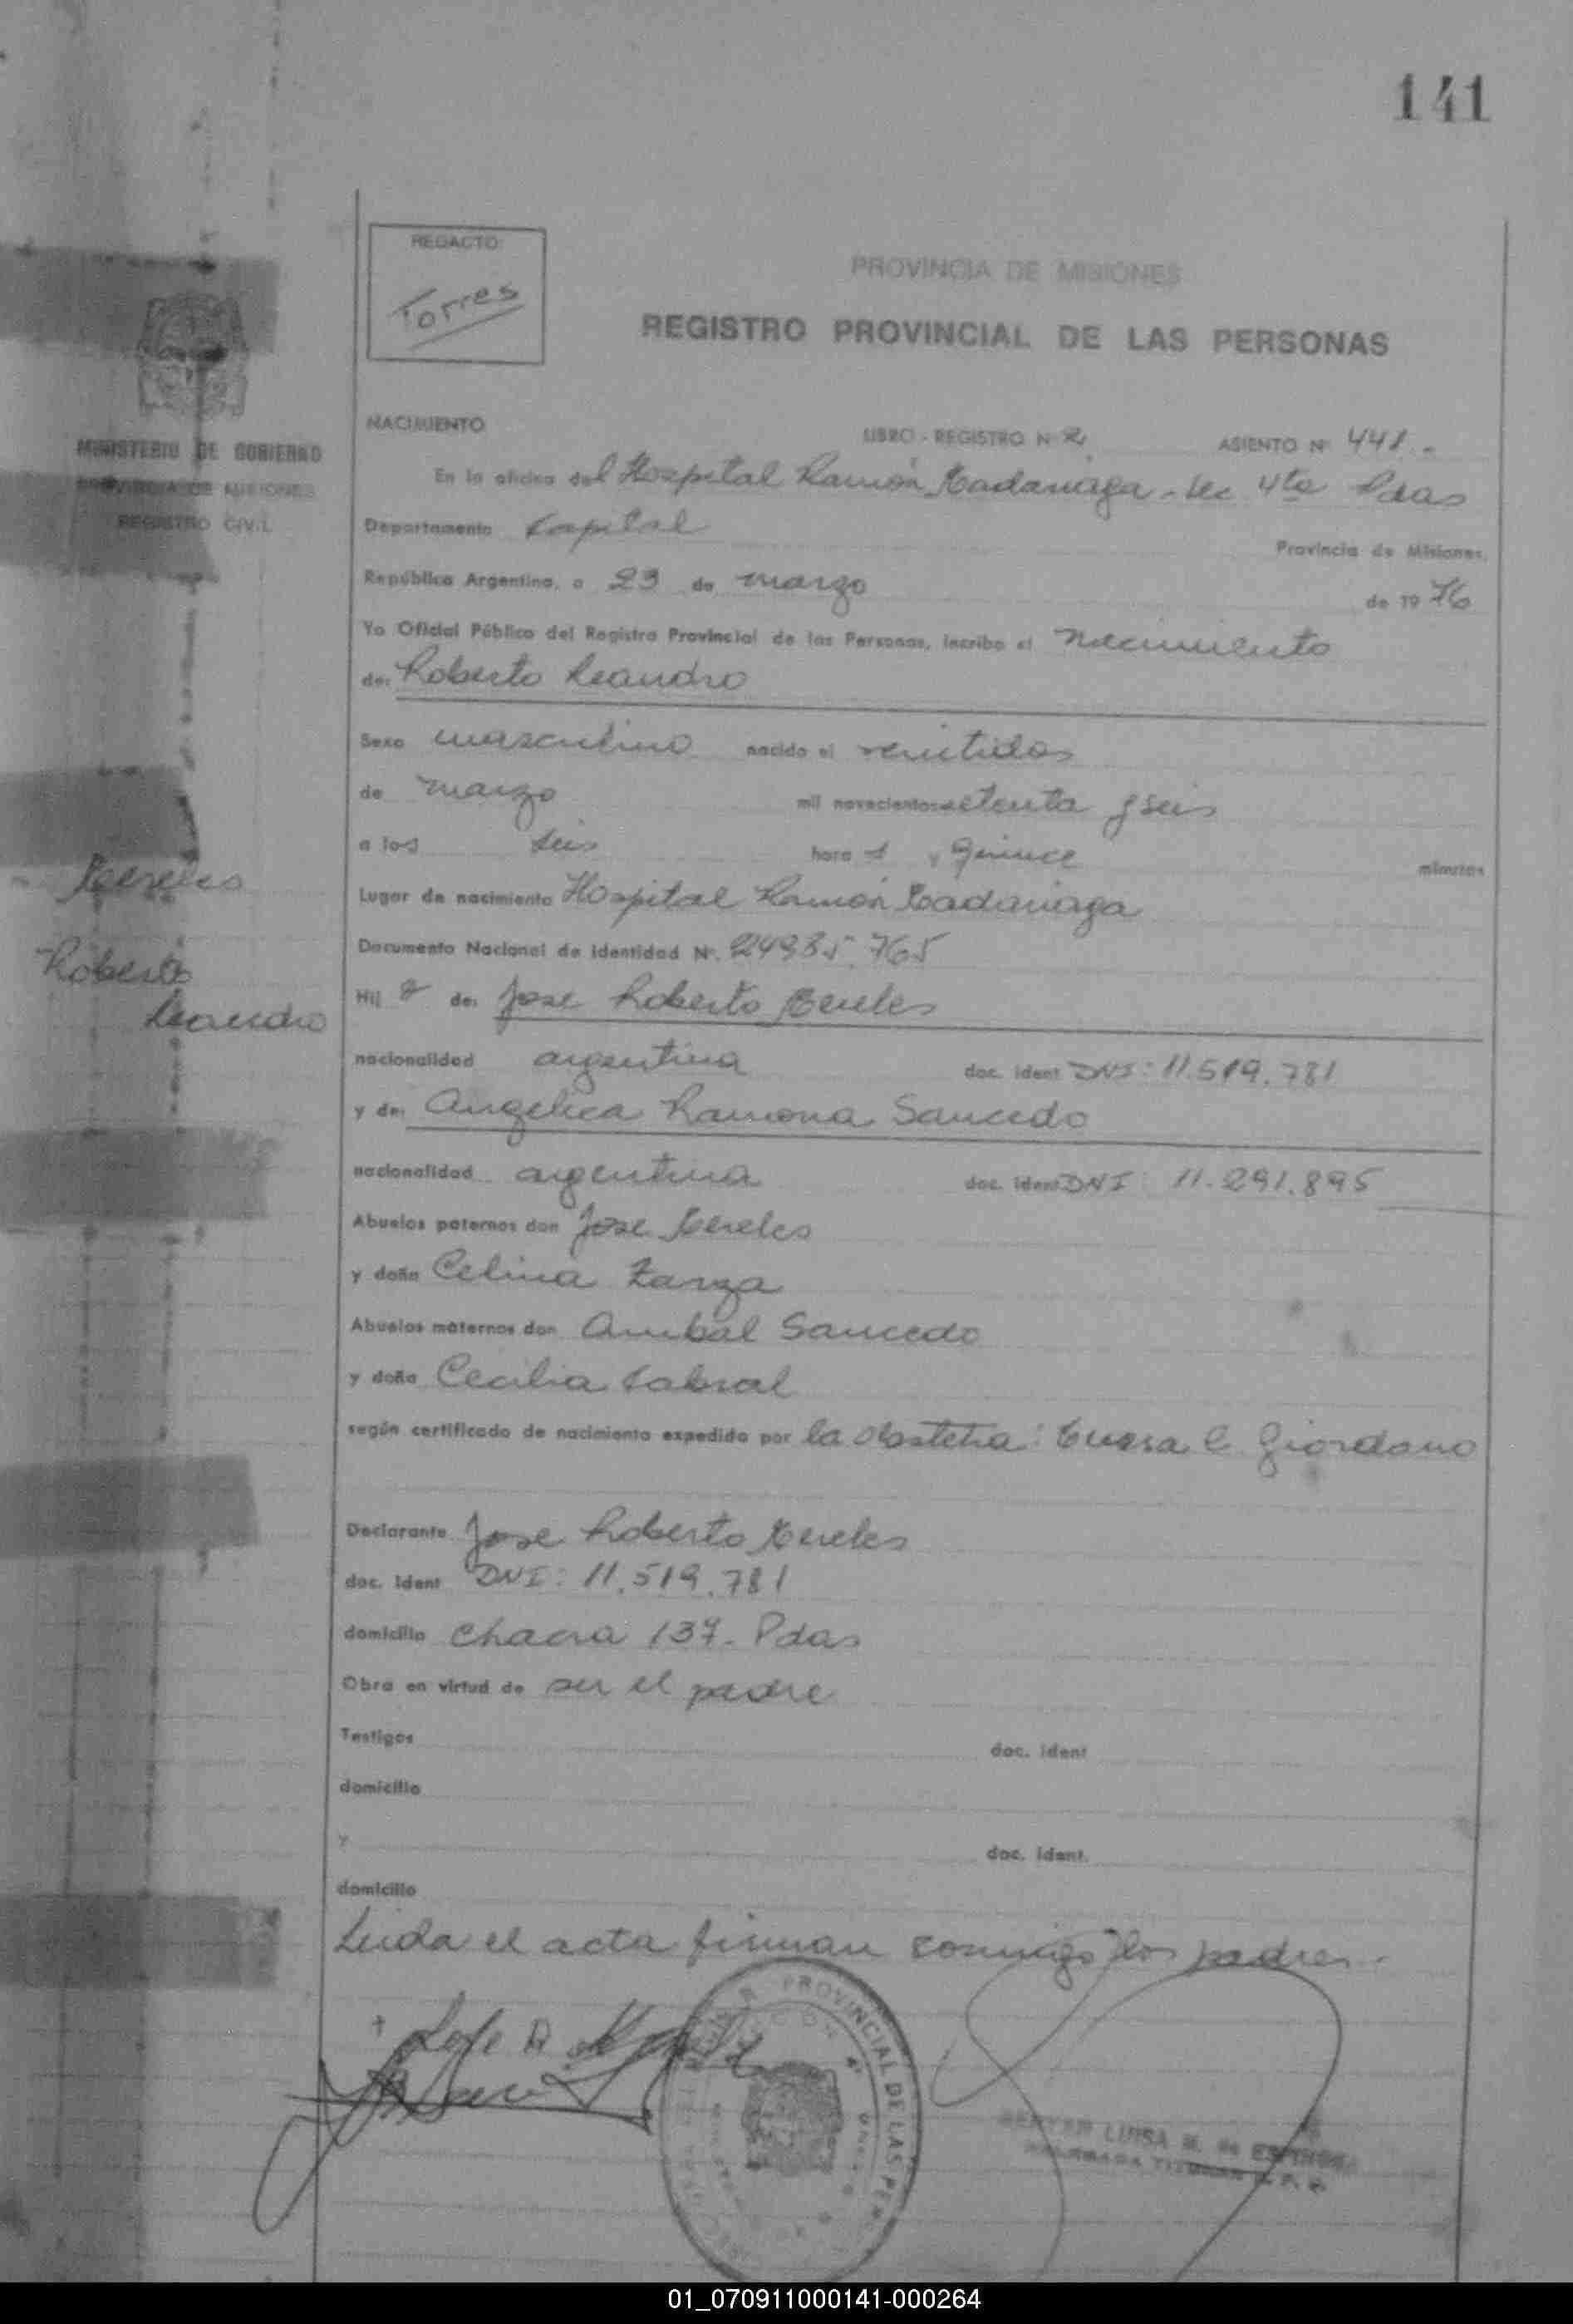 141
REDACTO:
Torres
PROVINCIA DE MISIONES
REGISTRO PROVINCIAL DE LAS PERSONAS
MINISTERIO DE GOBIERNO
PROVINCIA DE MISIONES
REGISTRO CIVIL
NACIMIENTO LIBRO - REGISTRO Nº 2 ASIENTO Nº 441.-
En la oficina del Hospital Ramón Madariaga - Sec. 4ta Pdas
Departamento Capital Provincia de Misiones,
República Argentina, a 23 de marzo de 19 76
Yo Oficial Público del Registro Provincial de las Personas, inscribo el Nacimiento
de: Roberto Leandro
Sexo masculino nacido el veintidos
de marzo mil novecientos setenta y seis
a las seis hora s y quince minutos
Lugar de nacimiento Hospital Ramón Madariaga
Documento Nacional de Identidad Nº. 24985.765
Hij o de: Jose Roberto Mereles
nacionalidad argentina doc. ident DNI: 11.519.781
y de: Angelica Ramona Saucedo
nacionalidad argentina doc. ident DNI: 11.291.895
Abuelos paternos don Jose Mereles
y doña Celina Zarza
Abuelos maternos don Anibal Saucedo
y doña Cecilia Cabral
según certificado de nacimiento expedido por la Obstetra: C. Giordano
Declarante Jose Roberto Mereles
doc. ident DNI: 11.519.781
domicilio Chacra 137- Pdas
Obra en virtud de ser el padre
Testigos doc. ident
domicilio
y doc. ident.
domicilio
Leida el acta firman conmigo los padres.-
Mereles
Roberto
Leandro
PROVINCIAL DE LAS PER
LUISA M. de
01_070911000141-000264